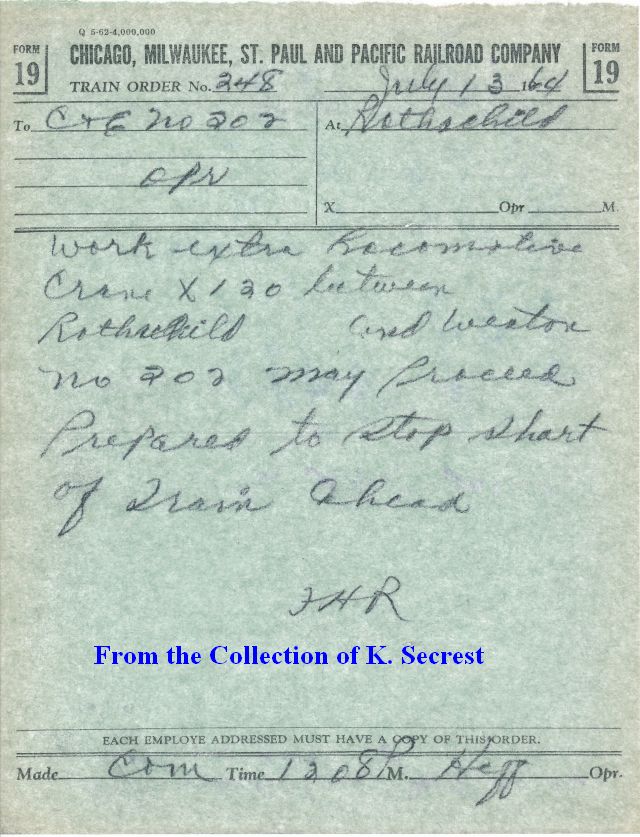 Q 5-62-4,000,000
FORM 19
CHICAGO, MILWAUKEE, ST. PAUL AND PACIFIC RAILROAD COMPANY
FORM 19
TRAIN ORDER No. 248 July 13 1964
To C & E No 202 At Rothschild
OPR
X Opr M.
Work extra Locomotive
Crane X 120 between
Rothschild and Weston
No 202 may Proceed
Prepared to stop short
of Train Ahead
FHR
From the Collection of K. Secrest
EACH EMPLOYE ADDRESSED MUST HAVE A COPY OF THIS ORDER.
Made Com Time 1208 P M. Opr.